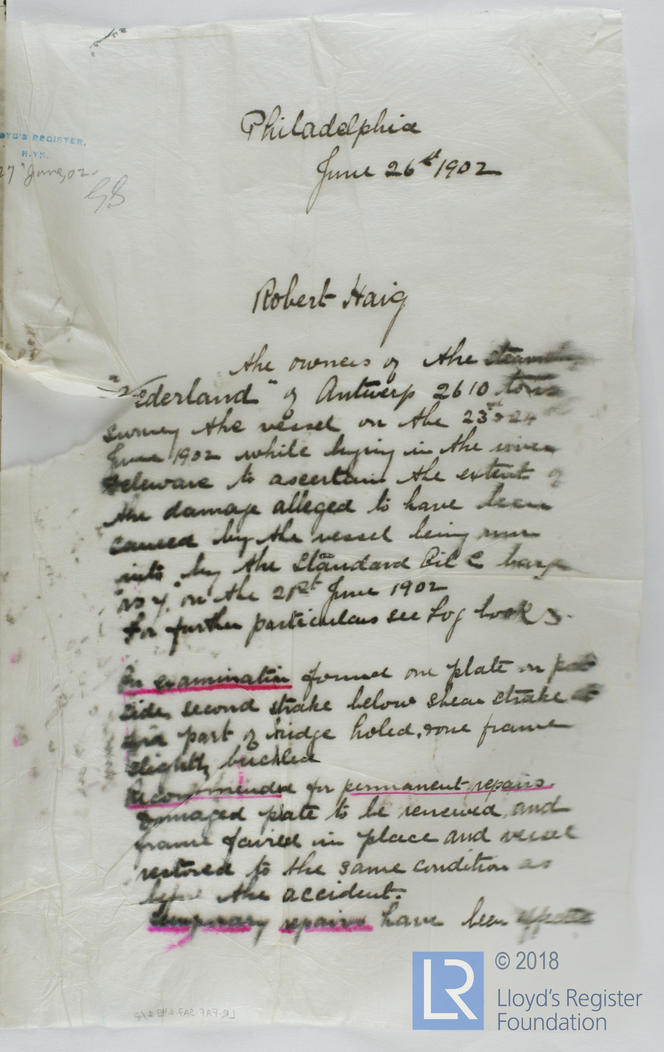 LOYD'S REGISTER,
N.YK.
27 June, 02.
Philadelphia
June 26th 1902
Robert Haig
the owners of the
"Nederland" of Antwerp 2610 tons
survey the vessel on the 23rd & 24
June 1902 while lying in the river
Deleware to ascertain the extent of
the damage alleged to have been
caused by the vessel being run
into by the Standard Oil C barge
on the 21st June 1902
For further particulars see Log book S.
On examination found one plate on port
side, second strake below shear strake at
part of bridge holed, one frame
slightly buckled
Recommended for permanent repairs.
Damaged plate to be renewed, and
frame faired in place and vessel
restored to the same condition as
before the accident.
Temporary repairs have been effected
LR-FAF
LR
© 2018
Lloyd's Register
Foundation